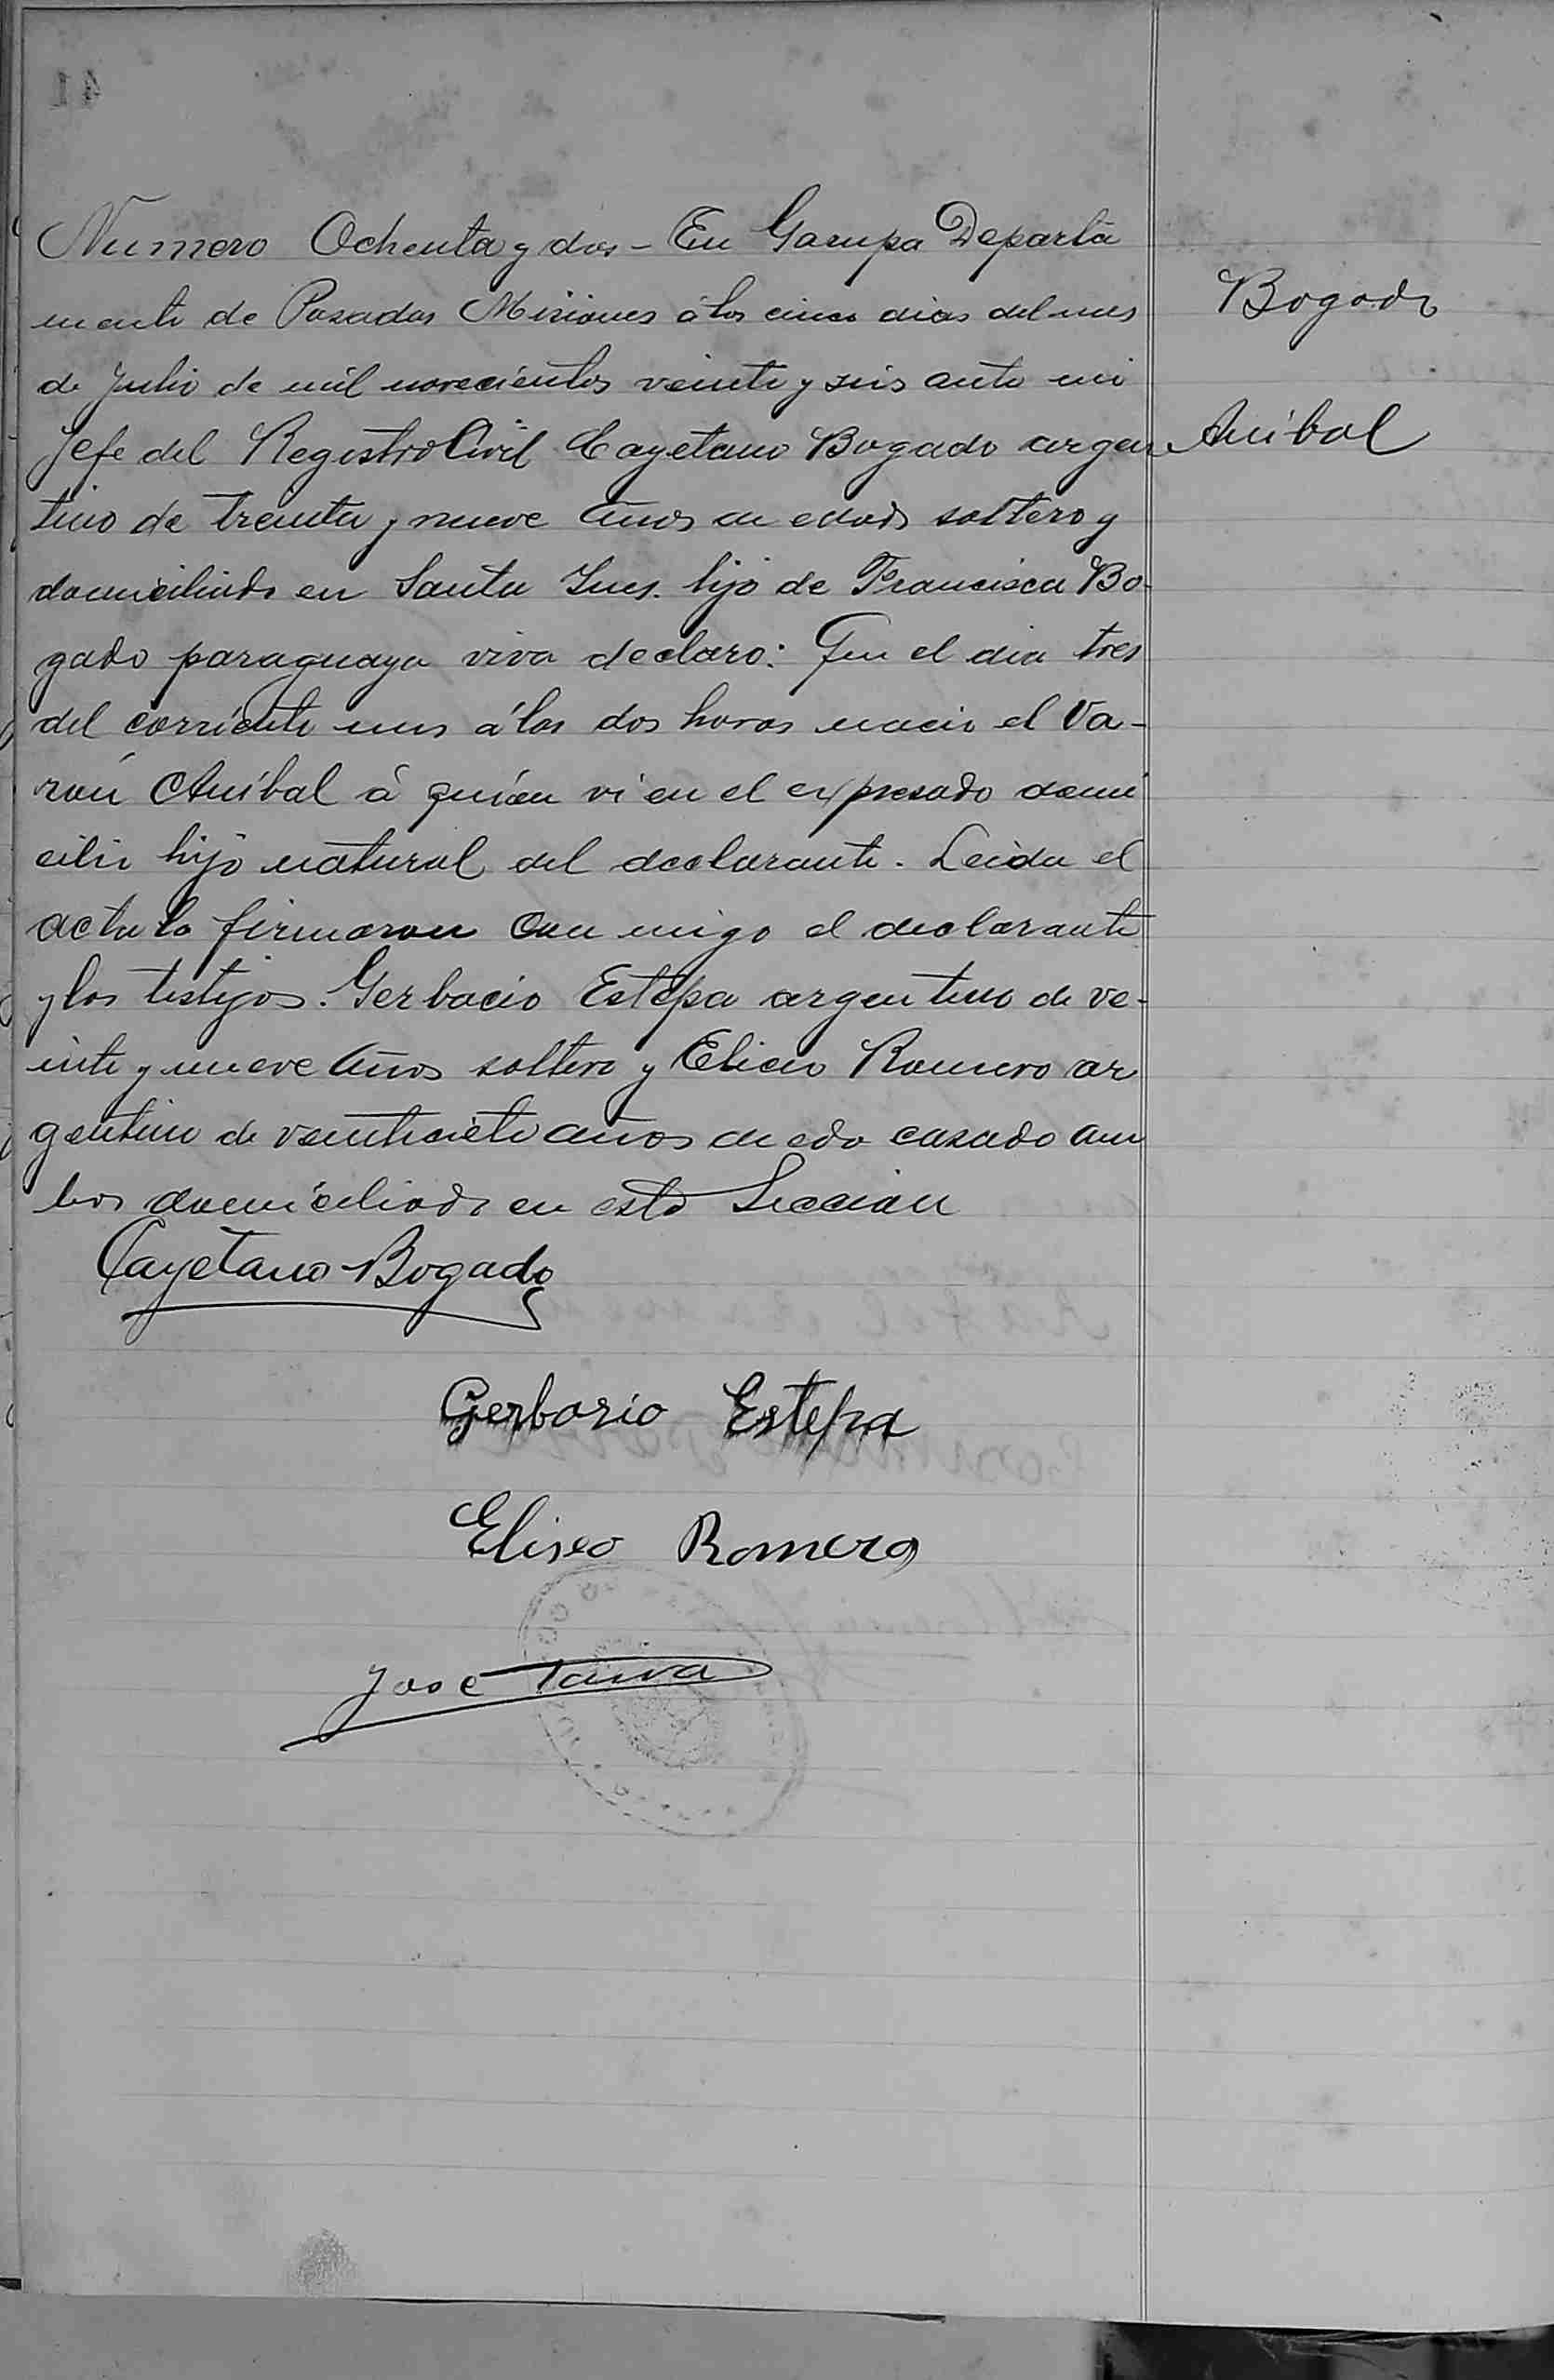 41
Numero Ochenta y dos - En Garupa Departa
mento de Posadas Misiones á los cinco dias del mes
de Julio de mil novecientos veinte y seis ante mi
Jefe del Registro Civil Cayetano Bogado argen
tino de treinta y nueve años de edad soltero y
domiciliado en Santa Ines. hijo de Francisca Bo-
gado paraguaya viva declaro: Que el dia tres
del corriente mes á las dos horas nacio el Va-
rón Aníbal á quién vi en el expresado domi
cilio hijo natural del declarante. Leida el
acta la firmaron con migo el declarante
y los testigos. Gerbacio Estepa argentino de ve-
inte y nueve años soltero y Eliceo Romero ar
gentino de veintisiete años de eda casado am
bos domiciliado en esta Seccion
Cayetano Bogado
Gerbasio Estepa
Eliseo Romero
José Paiva
Bogado
Anibal